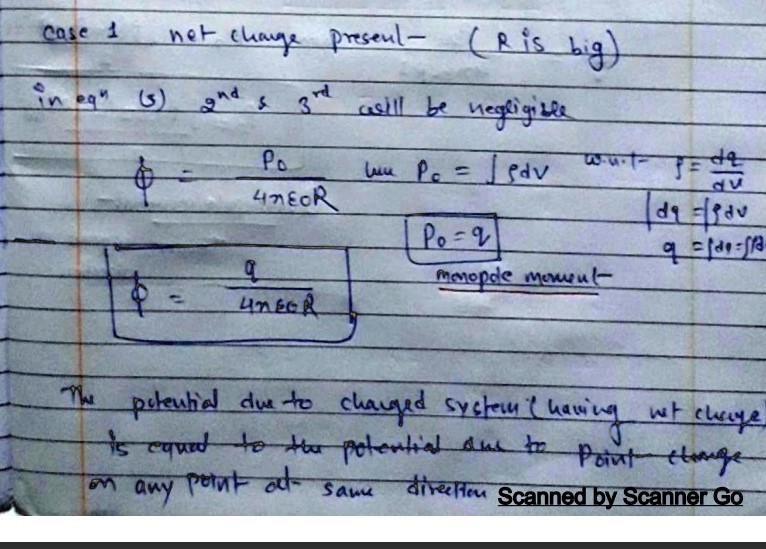 case 1 net charge present - (R is big)
in eqn (3) 2nd & 3rd will be negligible
ϕ = P0 / 4πε0R here P0 = ∫ρdv w.r.t ρ = dq/dv
∫dq = ∫ρdv
P0 = q
q = ∫dq = ∫ρd
monopole moment
ϕ = q / 4πε0R
The potential due to charged system (having net charge)
is equal to the potential due to Point charge
on any point at same direction
Scanned by Scanner Go